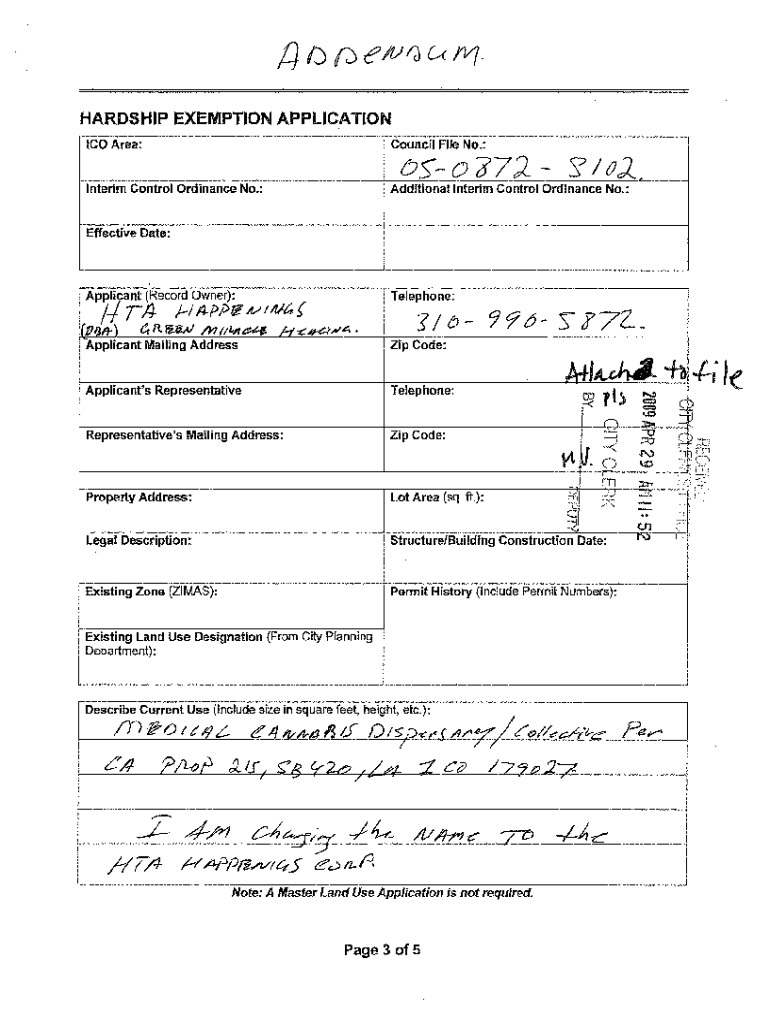 ADDENDUM.
HARDSHIP EXEMPTION APPLICATION
ICO Area:
Council File No.:
05-0872 - S102.
Interim Control Ordinance No.:
Additional Interim Control Ordinance No.:
Effective Date:
Applicant (Record Owner):
HTA HAPPENINGS
(DBA) GREEN MIRACLE HEALING.
Telephone:
310-990-5872.
Applicant Mailing Address
Zip Code:
Attached to file
Applicant's Representative
Telephone:
Representative's Mailing Address:
Zip Code:
pls
BY
DEPUTY
CITY CLERK
2009 APR 29 AM 11:52
RECEIVED
Property Address:
Lot Area (sq. ft.):
Legal Description:
Structure/Building Construction Date:
Existing Zone (ZIMAS):
Permit History (Include Permit Numbers):
Existing Land Use Designation (From City Planning
Department):
Describe Current Use (Include size in square feet, height, etc.):
MEDICAL CANNABIS Dispensary/Collective Per
CA PROP 215, SB420, LA ICO 179027
I AM Changing the NAME TO the
HTA HAPPENIGS CORP.
Note: A Master Land Use Application is not required.
Page 3 of 5